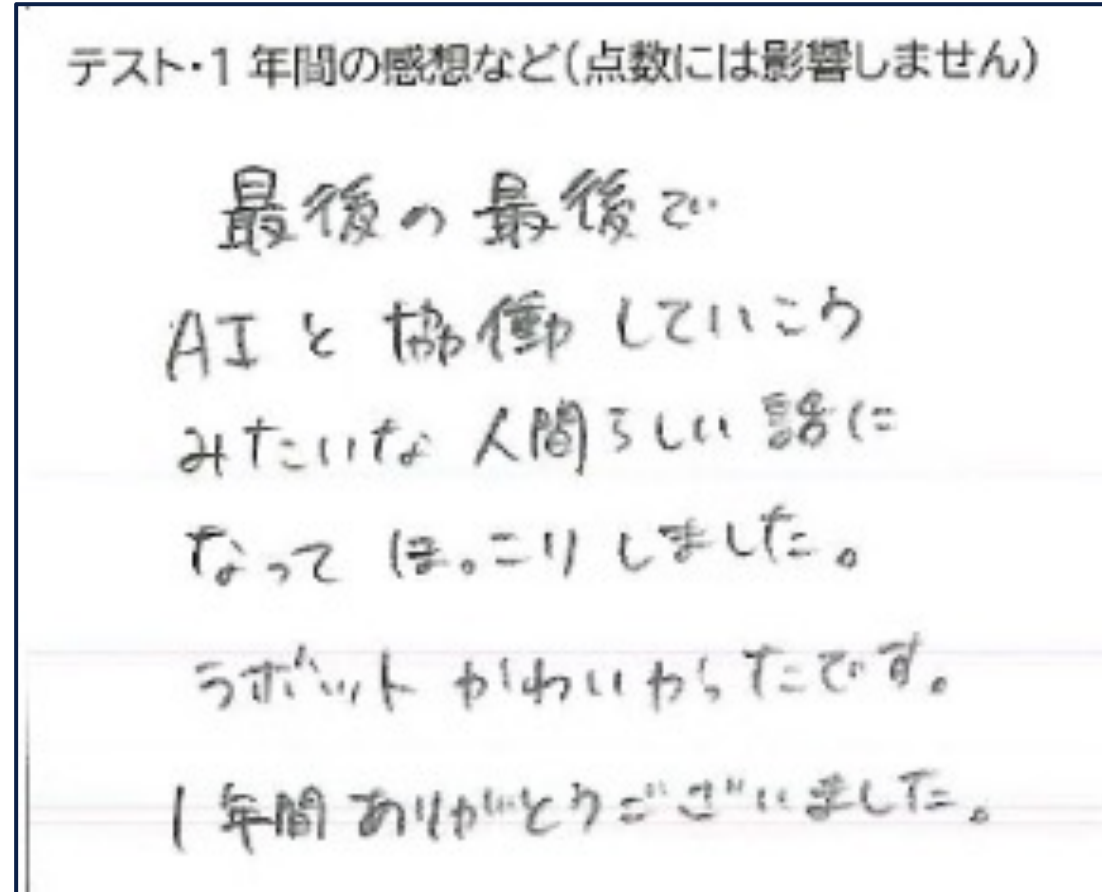 テスト・1年間の感想など(点数には影響しません)
最後の最後で
AIと協働していこう
みたいな人間らしい話に
なってほっこりしました。
ラボットかわいかったです。
1年間ありがとうございました。